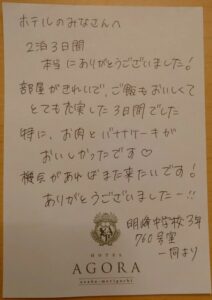 ホテルのみなさんへ
2泊3日間
本当にありがとうございました!
部屋がきれいで、ご飯もおいしくて
とても充実した3日間でした
特に、お肉とバナナケーキが
おいしかったです♡
機会があればまた来たいです!
ありがとうございましたー!!
明峰中学校3年
760号室
一同より
HOTEL
AGORA
osaka-moriguchi